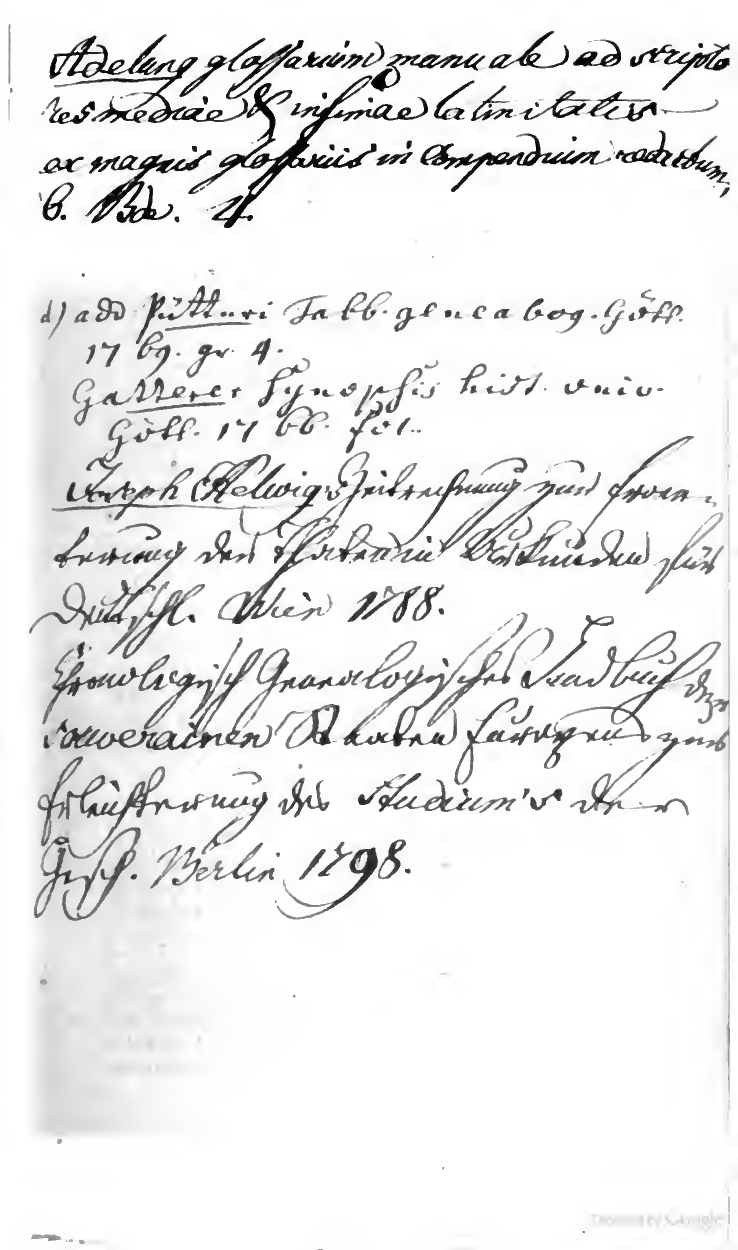 Adelung glossarium manuale ad scripto
res mediae & infimae latinitatis
ex magnis glossariis in Compendium redactum,
6. Bde. 4.
d) add Pütteri Tabb. genealog. Gött.
1769. gr. 4.
Gatterer Synopsis hist. univ.
Gött. 1766. fol.
Joseph Helwigs Zeitrechnung zur Eroer-
terung der Daten in Urkunden für
Deutschl. Wien 1788.
Chronologisch Genealogisches Handbuch der
souverainen Staaten Europens zur
Erleichterung des Studium's der
Gesch. Berlin 1798.